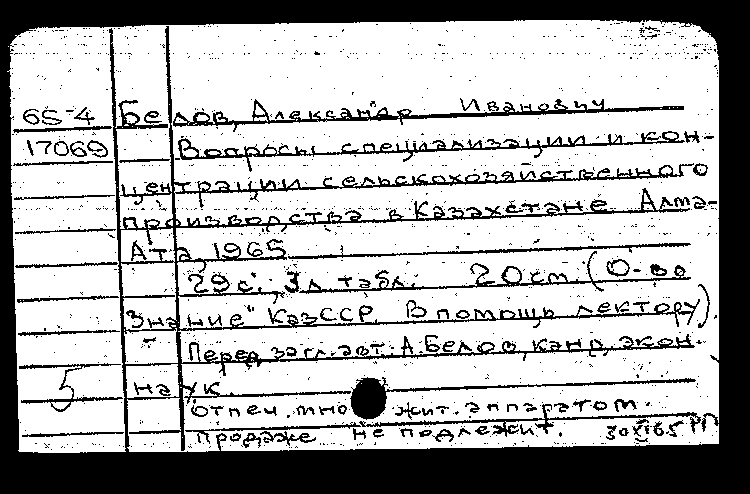 65-4 Белов, Александр Иванович
17069 Вопросы специализации и кон-
центрации сельскохозяйственного
производства в Казахстане. Алма-
Ата, 1965
29 с., 3 л. табл. 20 см. (О-во
"Знание" КазССР. В помощь лектору).
Перед загл. авт.: А. Белов, канд. экон.
5 наук.
Отпеч. множит. аппаратом.
Продаже не подлежит. 30XI65 РП